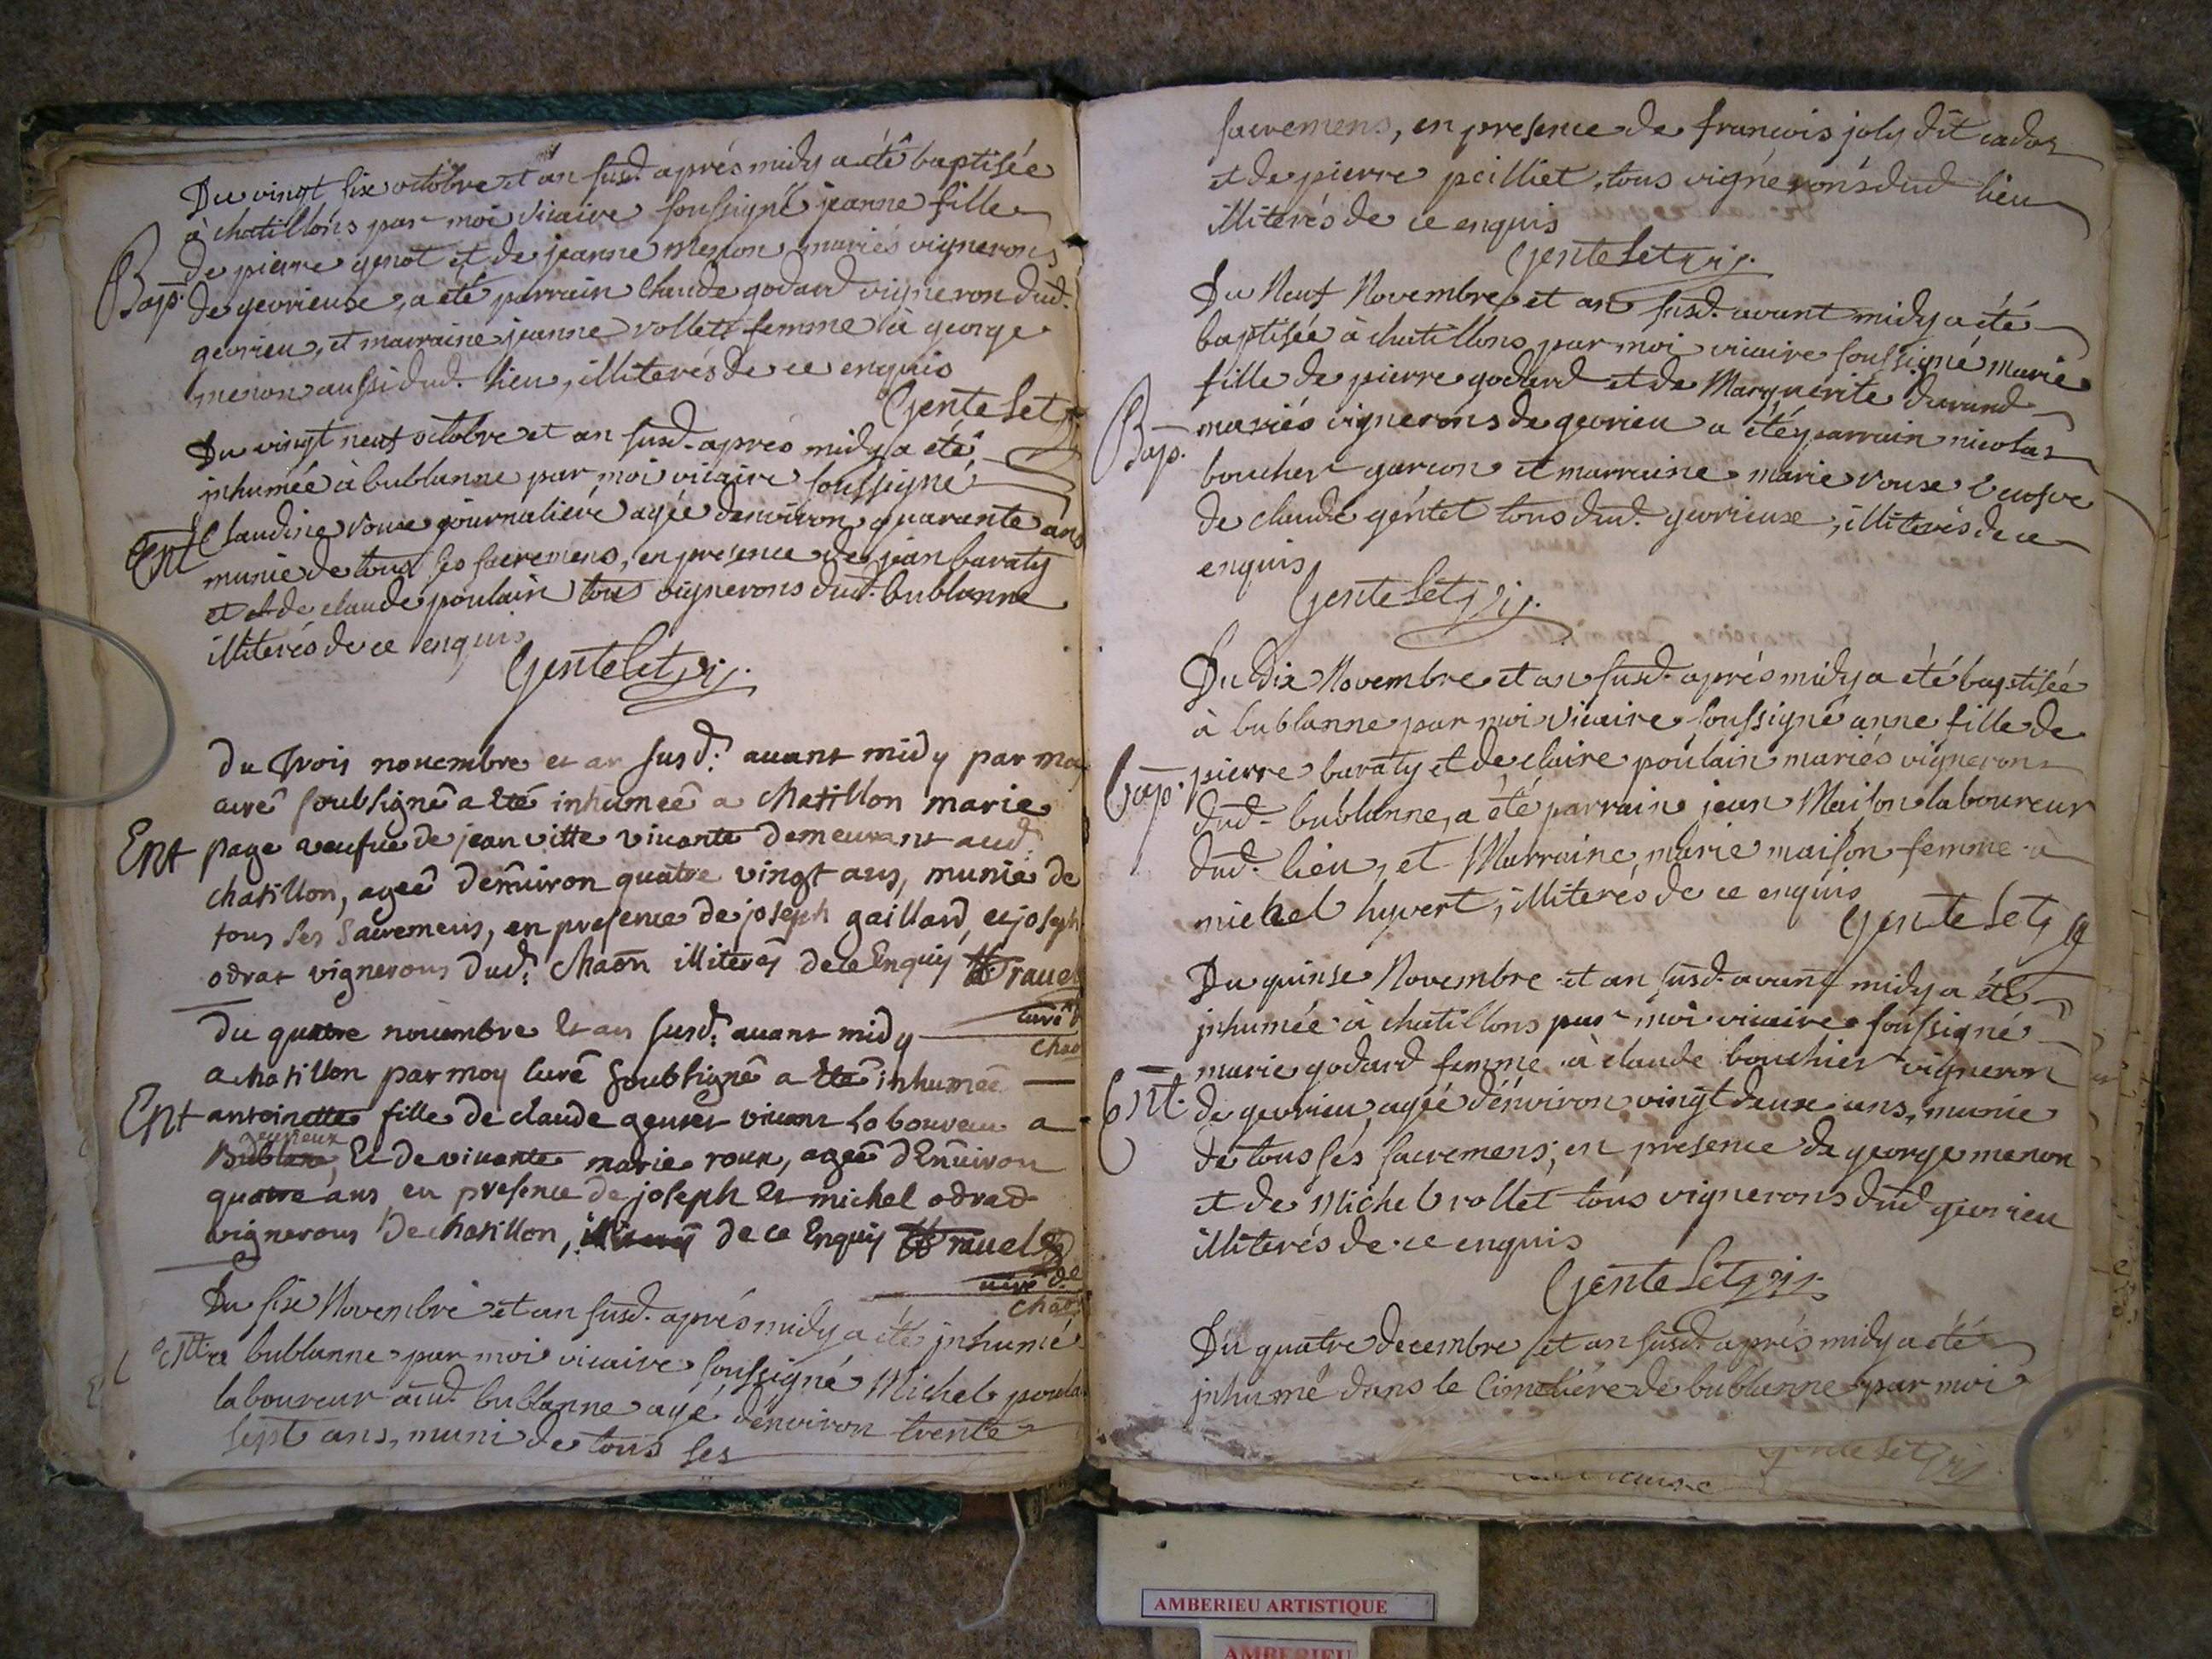 Du vingt six octobre et an susd. aprés midy a été baptisée
à chatillons par moi vicaire soussigné jeanne fille
de pierre genot et de jeanne menon mariés vignerons
Bap. de gevrieux, a été parrain Claude godard vigneron dud.
gevrieu, et marraine jeanne vollett femme à george
menon aussi dud. lieu, illiterés de ce enquis
Gentelet
Du vingt neuf octobre et an susd. aprés midy a été
inhumée à bublanne par moi vicaire soussigné
Ent Claudine roux journaliére agée d'environ quarante ans
munie de tous ses sacremens, en presence de jean baraty
et de claude poulain tous vignerons dud. bublanne
illiterés de ce enquis
Gentelet vi.
du trois novembre et an susd. avant midy par moy
curé soubsigné a eté inhumeé a chatillon marie
Ent page veufue de jean vitte vivante demeurant aud.
chatillon, ageé d'environ quatre vingt ans, munie de
tous ses sacremens, en presence de joseph gaillard, et joseph
odrat vignerons dud. chaõn illiterés de ce Enquis ravel
curé d
chao
du quatre nouembre et an susd. avant midy
a chatillon par moy curé soubsigné a eté inhumeé
Ent antoinette fille de claude genset vivant laboureur a
gevrieux
Bublane, et de vivante marie roux, ageé d'Environ
quatre ans en presence de joseph et michel odrad
vignerons de chatillon, illiterés de ce Enquis ravel
curé de
chaõ
Du six Novembre et an susd. aprés midy a été inhumé
Ent a bublanne par moi vicaire soussigné Michel poula
laboureur aud. bublanne agé d'environ trente
sept ans, muni de tous ses
sacremens, en presence de francois joly dit cados
et de pierre peilliet, tous vignerons dud. lieu
illiterés de ce enquis
Gentelet vi.
Du Neuf Novembre et an susd. avant midy a été
baptisée à chatillons par moi vicaire soussigné marie
fille de pierre godard et de Marguerite durand
Bap. mariés vignerons de gevrieu a été parrain nicolas
boucher garcon et marraine marie roux veufve
de claude gentet tous dud. gevrieux, illiterés de ce
enquis
Gentelet vi.
Du Dix Novembre et an susd. aprés midy a été baptisée
à bublanne par moi vicaire soussigné anne fille de
Bap. pierre baraty et de claire poulain mariés vignerons
dud. bublanne, a été parrain jean Maison laboureur
dud. lieu, et Marraine marie maison femme à
michel hyvert, illiterés de ce enquis
Gentelet
Du quinse Novembre et an susd. avant midy a été
inhumée à chatillons par moi vicaire soussigné
marie godard femme à claude bouchier vigneron
Ent. de gevrieu, agée d'environ vingt deux ans, munie
de tous ses sacremens, en presence de george menon
et de Michel vollet tous vignerons dud gevrieu
illiterés de ce enquis
Gentelet vi.
Du quatre decembre et an susd. aprés midy a été
inhumé dans le Cimetiére de bublanne par moi
Gentelet vi
AMBERIEU ARTISTIQUE
AMBERIEU